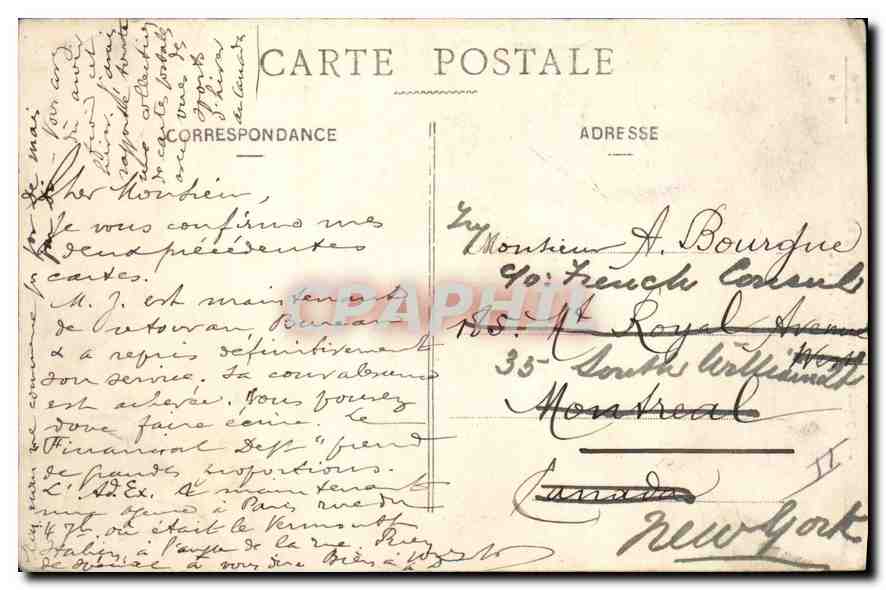 CARTE POSTALE
CORRESPONDANCE
ADRESSE
Cher Monsieur,
Je vous confirme mes
deux précédentes
cartes.
M. J. est maintenant
de retour au Bureau
& a repris définitivement
son service. Sa convalescence
est achevée. Vous pouvez
donc faire écrire. Le
"Financial Dept" prend
de grandes proportions.
L'Ad. Ex. a maintenant
une agence à Paris rue du
4 7bre où était le Vermouth
Italien, à l'angle de la rue
de spécial à vous dire Bien à vous
rapporté toute
une collection
de cartes postales
avec vues de
sports
d'hiver
au Canada
Monsieur A. Bourgue
c/o: French Consul
185. Mt Royal Avenue
West
35 South William St
Montreal
Canada
New York
II
CPAPHIL